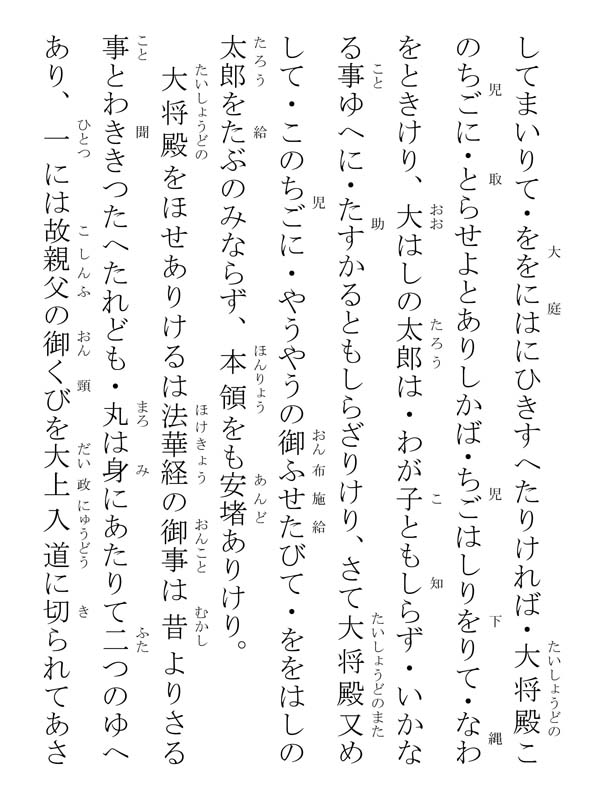 してまいりて・ををにはにひきすへたりければ・大将殿こ
のちごに・とらせよとありしかば・ちごはしりをりて・なわ
をときけり、大はしの太郎は・わが子ともしらず・いかな
る事ゆへに・たすかるともしらざりけり、さて大将殿又め
して・このちごに・やうやうの御ふせたびて・ををはしの
太郎をたぶのみならず、本領をも安堵ありけり。
大将殿をほせありけるは法華経の御事は昔よりさる
事とわききつたへたれども・丸は身にあたりて二つのゆへ
あり、一には故親父の御くびを大上入道に切られてあさ